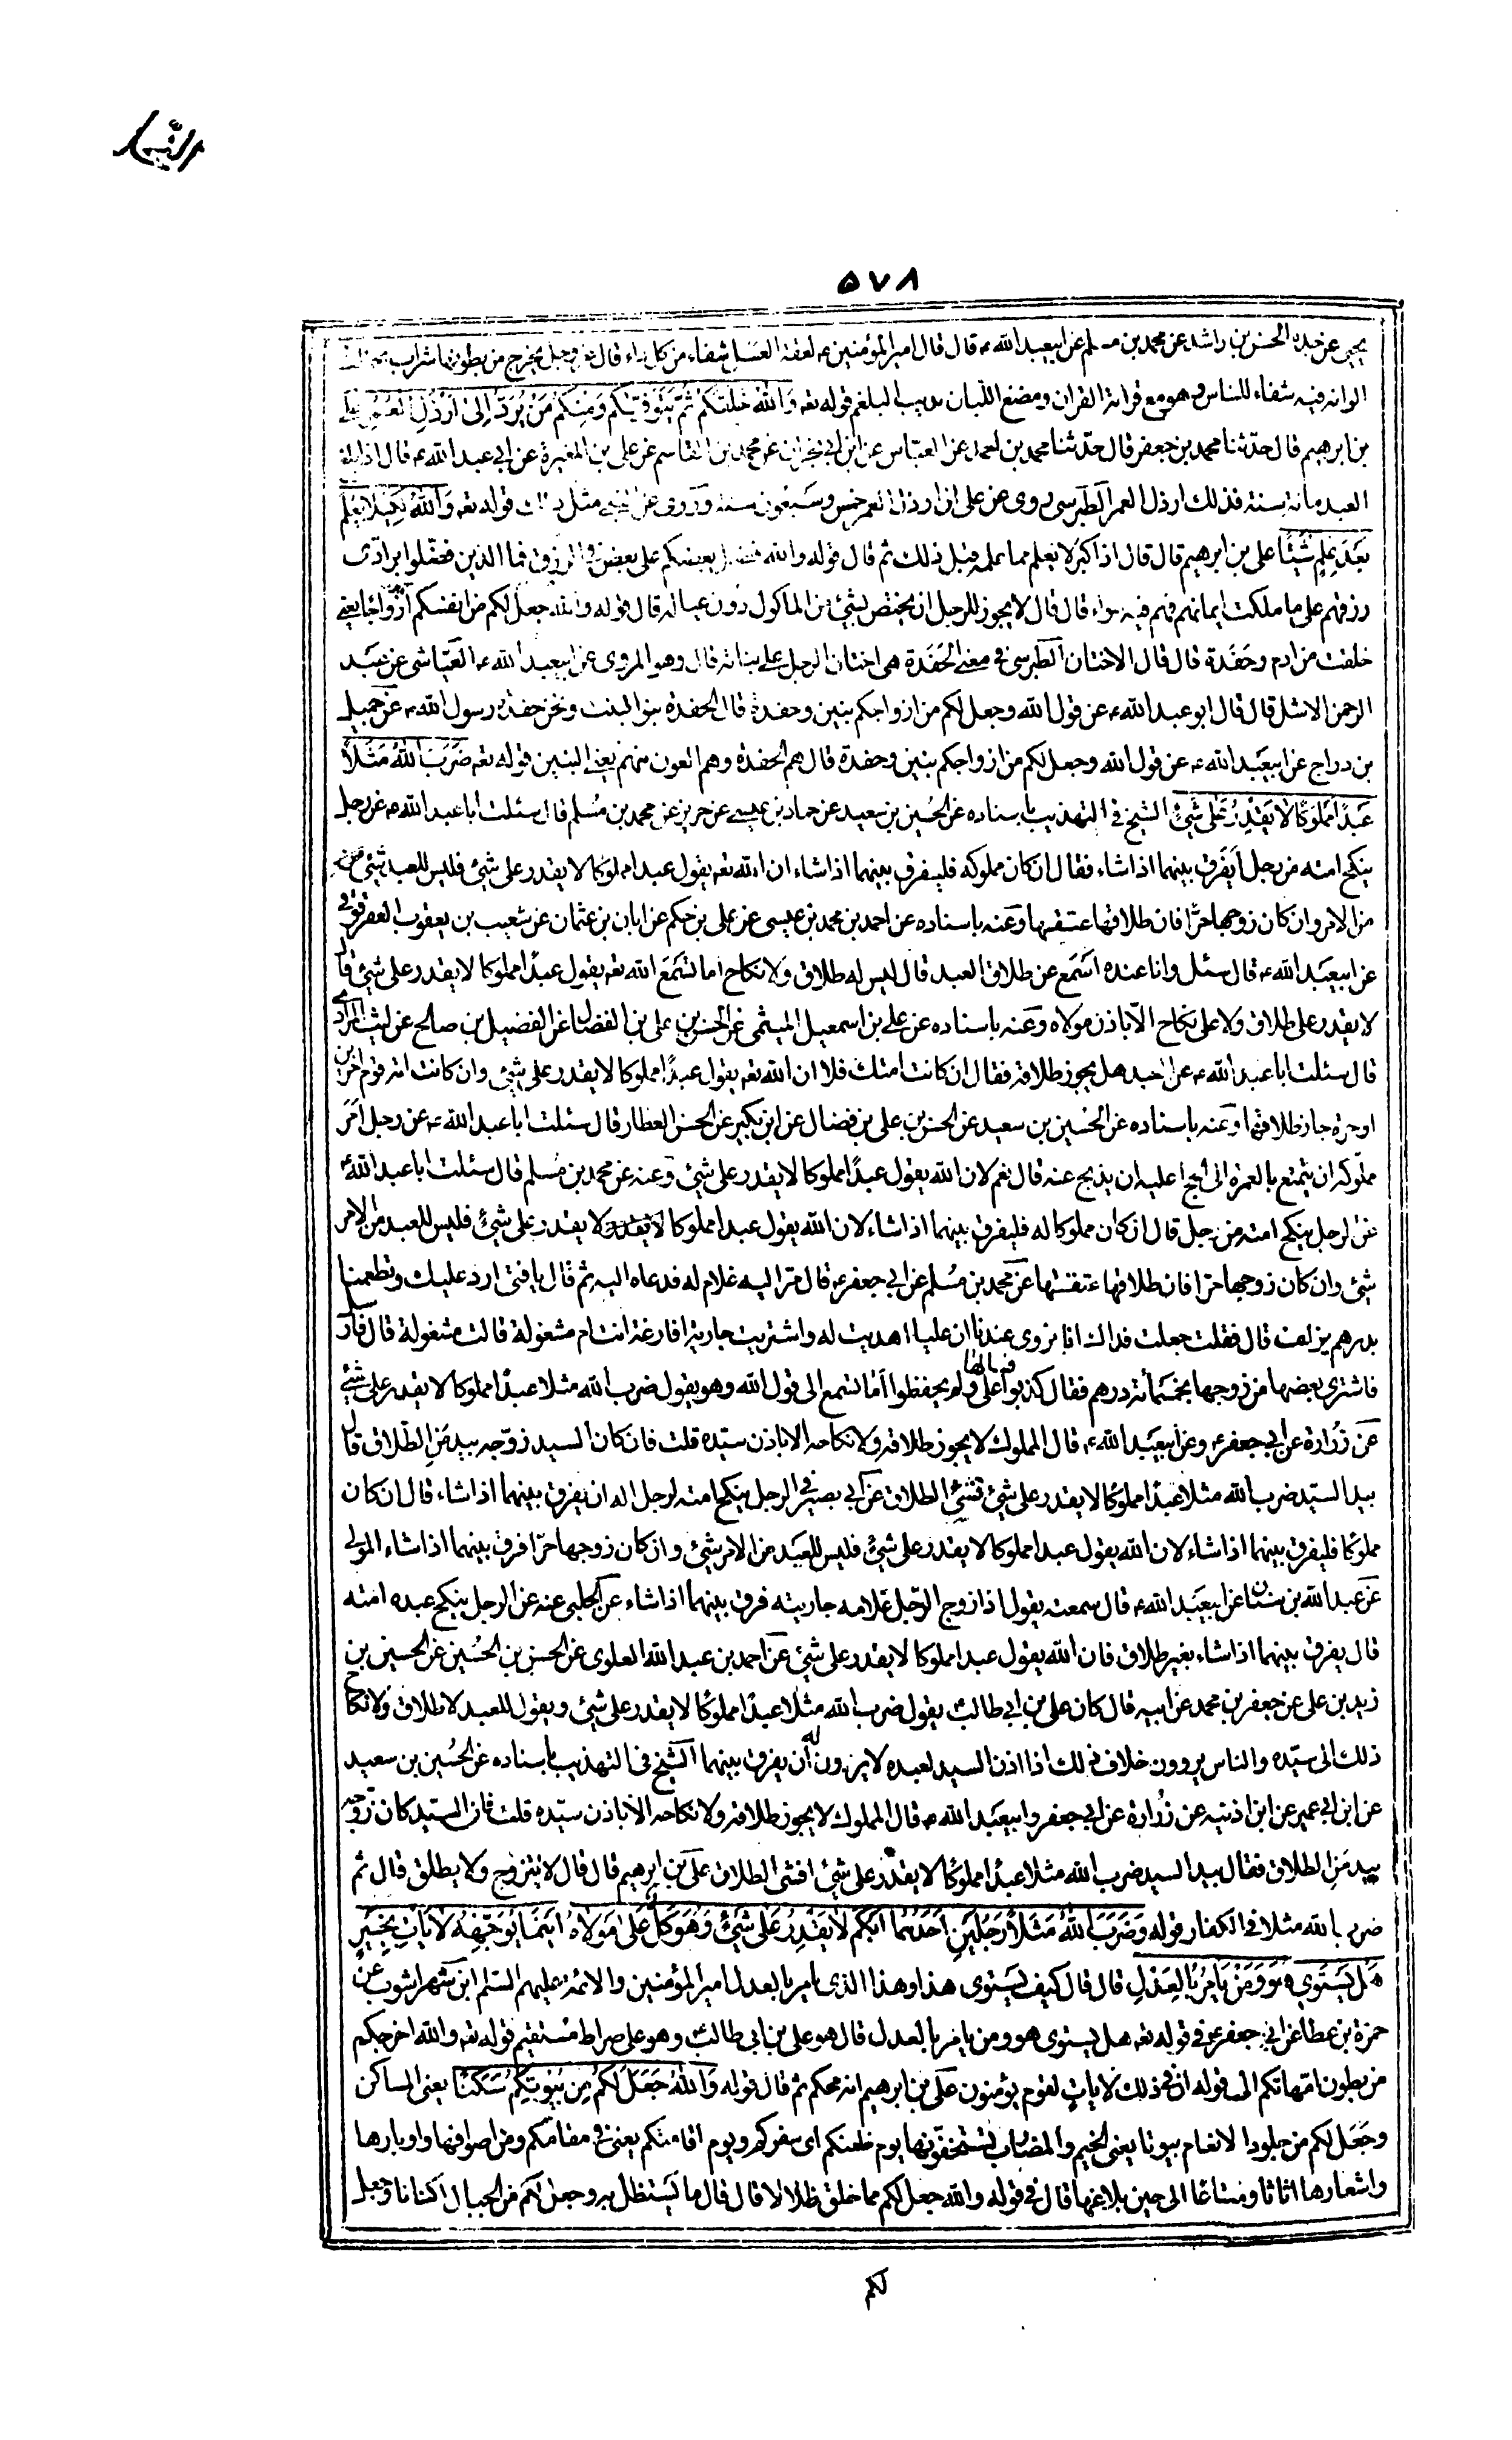 ٥٧٨
يحيى عن جده الحسن بن راشد عن محمد بن مسلم عن ابيعبد الله ع قال قال امير المؤمنين ع لعقة العسل شفاء من كل داء قال عز وجل يخرج من بطونها شراب مختلف
الوانه فيه شفاء للناس وهو مع قرائة القران ومضغ اللبان يذيب البلغم قوله تعه وَاللهُ خَلَقَكُمْ ثُمَّ يَتَوَفّيكُمْ وَمِنكُمْ مَنْ يُرَدُّ اِلىٰ اَرْذَلِ العُمُرِ على
بن ابرهيم قال حدثنا محمد بن جعفر قال حدثنا محمد بن احمد عن العباس عن ابن ابي نجران عن محمد بن القاسم عن على بن المغيرة عن ابي عبد الله ع قال اذا بلغ
العبد مائة سنة فذلك ارذل العمر الطبرسى روى عن على ان ارذل العمر خمس وسبعون سنة وروى عن النبي مثل ذلك قوله تعه وَاللهُ لِكَيْلا يَعْلَمَ
بَعْدَ عِلْمٍ شَيْئًا على بن ابرهيم قال قال اذا كبر لا يعلم مما علمه قبل ذلك ثم قال قوله والله فضل بعضكم على بعض في الرزق فما الذين فضلوا برادّى
رزقهم على ما ملكت ايمانهم فهم فيه سواء قال قال لا يجوز للرجل ان يختص بشئ من الماكول دون عياله قال قوله والله جعل لكم من انفسكم ازواجا يعنى
خلقت من ادم وحفدة قال قال الاختان الطبرسى في معنى الحفدة هى اختان الرجل على بناته قال وهو المروى عن ابيعبد الله ع العياشى عن عبد
الرحمن الاشل قال قال ابو عبد الله ع عن قول الله وجعل لكم من ازواجكم بنين وحفدة قال الحفدة بنو البنت ونحن حفدة رسول الله ص عن جميل
بن دراج عن ابيعبد الله ع عن قول الله وجعل لكم من ازواجكم بنين وحفدة قال هم الحفدة وهم العون منهم يعنى البنين قوله تعه ضَرَبَ اللهُ مَثَلاً
عَبْدًا مَمْلُوكًا لا يَقْدِرُ عَلى شَيْئٍ الشيخ في التهذيب باسناده عن الحسين بن سعيد عن حماد بن عيسى عن حريز عن محمد بن مسلم قال سئلت ابا عبد الله ع عن رجل
ينكح امته من رجل ايفرق بينهما اذا شاء فقال ان كان مملوكه فليفرق بينهما اذا شاء ان الله تعه يقول عبدا مملوكا لا يقدر على شئ فليس للعبد شئ
من الامر وان كان زوجها حرّا فان طلاقها عتقها وعنه باسناده عن احمد بن محمد بن عيسى عن على بن حكم عن ابان بن عثمان عن شعيب بن يعقوب العقرقوفى
عن ابيعبد الله ع قال سئل وانا عنده اسمع عن طلاق العبد قال ليس له طلاق ولا نكاح اما تسمع الله تعه يقول عبدًا مملوكا لا يقدر على شئ قال
لا يقدر على طلاق ولا على نكاح الّا باذن مولاه وعنه باسناده عن على بن اسمعيل الميثمى عن الحسن بن على بن الفضال عن الفضيل بن صالح عن ليث المرادى
قال سئلت ابا عبد الله ع عن العبد هل يجوز طلاقه فقال ان كانت امتك فلا ان الله تعه يقول عبدًا مملوكا لا يقدر على شئ وان كانت امة قوم اخرين
او حرة جاز طلاقها وعنه باسناده عن الحسين بن سعيد عن الحسن بن على بن فضال عن ابن بكير عن الحسن العطار قال سئلت ابا عبد الله ع عن رجل امر
مملوكه ان يتمتع بالعمرة الى الحج اعليه ان يذبح عنه قال نعم لان الله يقول عبدًا مملوكا لا يقدر على شئ وعنه عن محمد بن مسلم قال سئلت ابا عبد الله ع
عن الرجل ينكح امته من رجل قال ان كان مملوكا له فليفرق بينهما اذا شاء لان الله يقول عبدا مملوكا لا يقدر على شئ فليس للعبد من الامر
شئ وان كان زوجها حرّا فان طلاقها عتقها عن محمد بن مسلم عن ابي جعفر ع قال مرّ اليه غلام له فدعاه اليه ثم قال يا فتى ارد عليك وتطعمنا
بدرهم قال فقلت جعلت فداك انا نروى عندنا ان عليا اهديت له واشتريت جارية افارغة انت ام مشغولة قالت مشغولة قال فارسل
فاشترى بعضها من زوجها بخمسمائة درهم فقال كذبوا على على ولم يحفظوا أما تسمع الى قول الله وهو يقول ضرب الله مثلا عبدًا مملوكا لا يقدر على شئ
عن زرارة عن ابي جعفر ع وعن ابيعبد الله ع قال المملوك لا يجوز طلاقه ولا نكاحه الا باذن سيّده قلت فان كان السيد زوّجه بيد من الطلاق قال
بيد السيّد ضرب الله مثلا عبدًا مملوكا لا يقدر على شئ فشئ الطلاق عن ابي بصير في الرجل ينكح امته لرجل اله ان يفرق بينهما اذا شاء قال ان كان
مملوكا فليفرق بينهما اذا شاء لان الله يقول عبدا مملوكا لا يقدر على شئ فليس للعبد من الامر شئ وان كان زوجها حرّا فرق بينهما اذا شاء المولى
عن عبد الله بن سنان عن ابيعبد الله ع قال سمعته يقول اذا زوج الرّجل غلامه جاريته فرق بينهما اذا شاء عن الحلبى عنه عن الرجل ينكح عبده امته
قال يفرق بينهما اذا شاء بغير طلاق فان الله يقول عبدا مملوكا لا يقدر على شئ عن احمد بن عبد الله العلوى عن الحسن بن الحسين عن الحسين بن
زيد بن على عن جعفر بن محمد عن ابيه قال كان على بن ابي طالب يقول ضرب الله مثلا عبدًا مملوكا لا يقدر على شئ ويقول للعبد لا طلاق ولا نكاح
ذلك الى سيّده والناس يروون خلاف ذلك اذا اذن السيد لعبده لا يرون له أن يفرق بينهما الشيخ في التهذيب باسناده عن الحسين بن سعيد
عن ابن ابي عمير عن ابن اذنيه عن زرارة عن ابي جعفر وابيعبد الله ع قال المملوك لا يجوز طلاقه ولا نكاحه الّا باذن سيّده قلت فان السيّد كان زوّجه
بيد من الطلاق فقال بيد السيد ضرب الله مثلا عبدًا مملوكا لا يقدر على شئ افشئ الطلاق على بن ابرهيم قال قال لا يتزوج ولا يطلق قال ثم
ضرب الله مثلا في الكفار قوله وَضَرَبَ اللهُ مَثَلاً رَجُلَيْنِ اَحَدُهُما اَبْكَمُ لا يَقْدِرُ عَلى شَئٍ وَهُوَ كَلٌّ عَلى مَوْلاهُ اَيْنَما يُوَجِّهْهُ لا يَاْتِ بِخَيْرٍ
هَلْ يَسْتَوِي هُوَ وَمَنْ يَامُرُ بِالعَدْلِ قال قال كيف يستوى هذا وهذا الذى يامر بالعدل امير المؤمنين والائمة عليهم السّلم ابن شهراشوب عن
حمزة بن عطا عن ابي جعفر ع في قوله تعه هل يستوى هو ومن يامر بالعدل قال هو على بن ابي طالب وهو على صراط مستقيم قوله تعه والله اخرجكم
من بطون امّهاتكم الى قوله ان في ذلك لايات لقوم يؤمنون على بن ابرهيم انه محكم ثم قال قوله وَاللهُ جَعَلَ لَكُمْ مِنْ بُيُوتِكُمْ سَكَنًا يعنى المساكن
وجعل لكم من جلود الانعام بيوتا يعنى الخيم والمضارب تستخفونها يوم ظعنكم اى سفركم ويوم اقامتكم يعنى في مقامكم ومن اصوافها واوبارها
واشعارها اثاثا ومتاعًا الى حين بلاغها قال في قوله والله جعل لكم مما خلق ظلالا قال قال ما يستظل به وجعل لكم من الجبال اكنانا وجعل
لكم